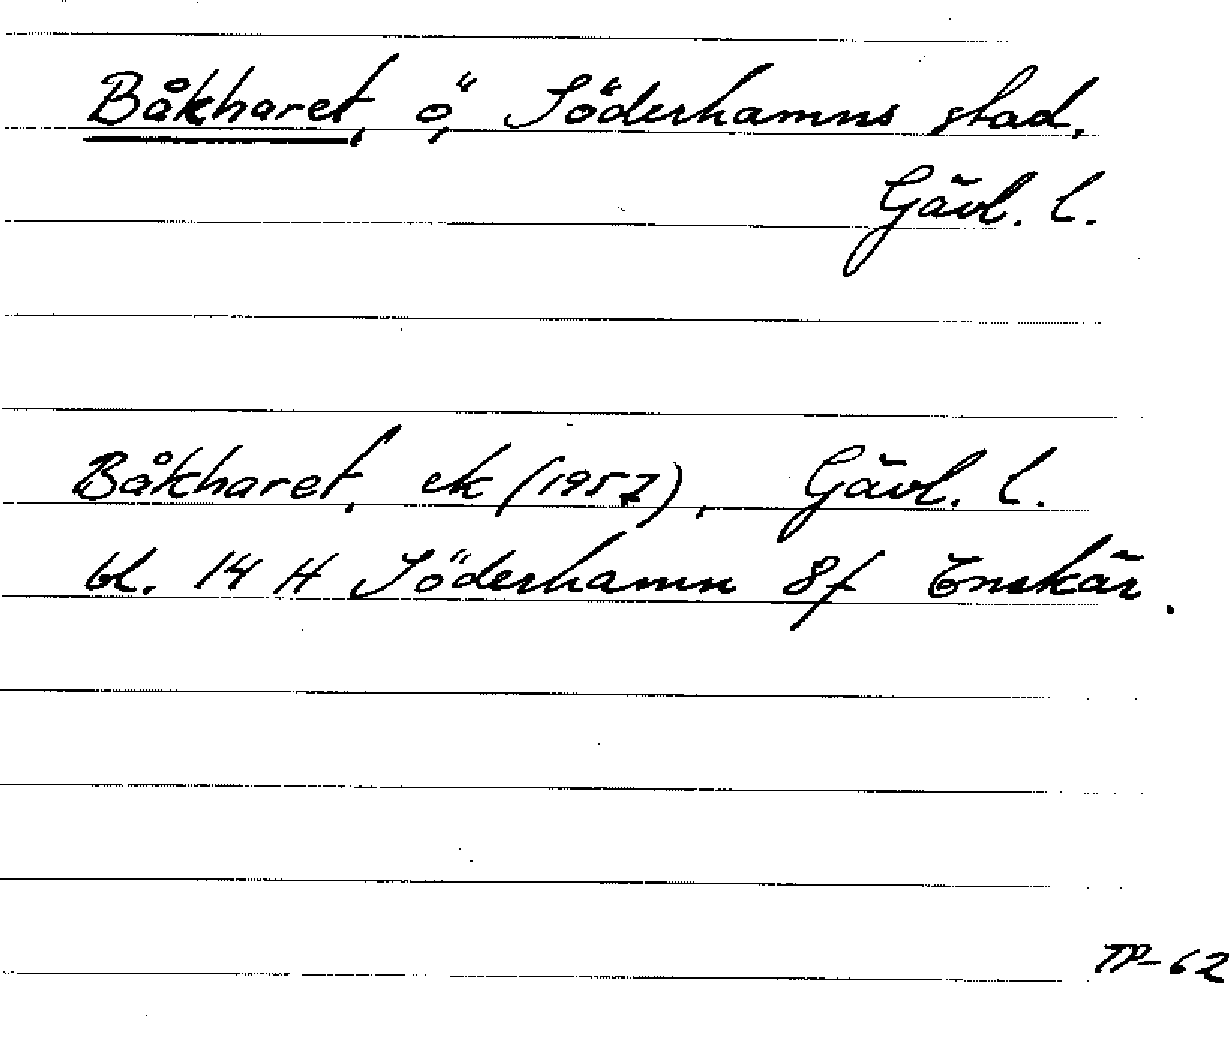 Båkharet, ö, Söderhamns stad,
Gävl. l.
Båkharet, ek (1957), Gävl. l.
bl. 14 H Söderhamn 8f Enskär.
TP-62